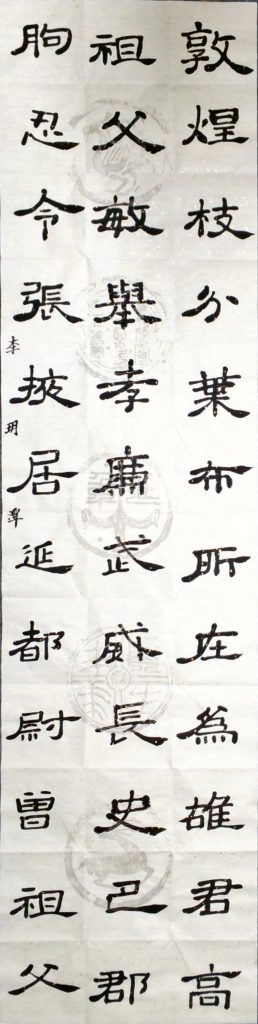 敦煌枝分葉布所在為雄君高
祖父敏舉孝廉武威長史巴郡
朐忍令張掖居延都尉曾祖父
李玥